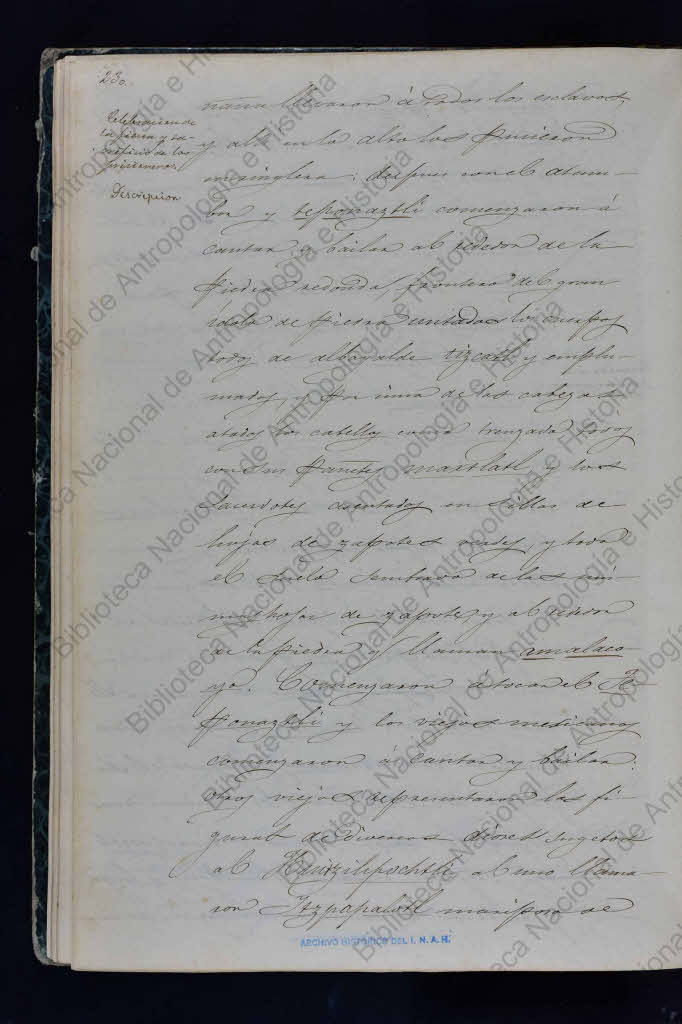 230.
Celebracion de
la fiesta y sa-
crificio de los
prisioneros.
Descripcion
ñana llevaron á todos los esclavos,
y alli en lo alto los pusieron
en ringlera: despues con el atam-
bor y teponaztli comenzaron á
cantar y bailar al rededor de la
piedra redonda, frontero del gran
idolo de piedra untados los cuerpos
todos de albayalde tizatl y emplu-
mados, y por cima de las cabezas
atados los cabellos como trenzado todos
con sus pañetes maxtlatl, y los
sacerdotes asentados en sillas de
hojas de zapotes verdes, y todo
el suelo sembrado de las mis-
mas hojas de zapotes, y al rededor
de la piedra y llaman amalaco-
yo. Comenzaron á tocar el Te-
ponaztli y los viejos mexicanos
comenzaron á cantar y bailar:
otros viejos representaron las fi-
guras de diversos dioses sugetos
al Huitzilipochtli, al uno llama-
ron Itzpapalotl mariposa de
ARCHIVO HISTORICO DEL I. N. A. H.
Biblioteca Nacional de Antropología e Historia